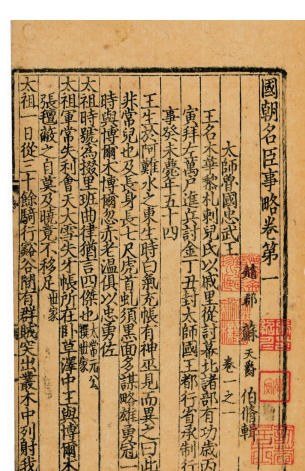 國朝名臣事略卷第一
趙郡 蘇 天爵 伯脩 輯
太師魯國忠武王 卷一之一
王名木華黎札剌兒氏以戚里從討蕃北諸部有功歲丙
寅拜左萬戶進兵討金丁丑封太師國王都行省承制行
事癸未薨年五十四
王生於阿難水之東生時白氣充帳有神巫見而異之曰此
非常兒也及長身長七尺虎首虬須黑面多謀略雄勇冠一
時與博爾木博爾忽赤老溫俱以忠勇佐
太祖時號為掇里班曲律猶言四傑也 太常元公撰世家
太祖軍嘗失利會天大雪失牙帳所在卧草澤中王與博爾木
張氊蔽之自莫及曉竟不移足 世家
太祖一日從三十餘騎行谿谷間有群賊突出叢木中列射我